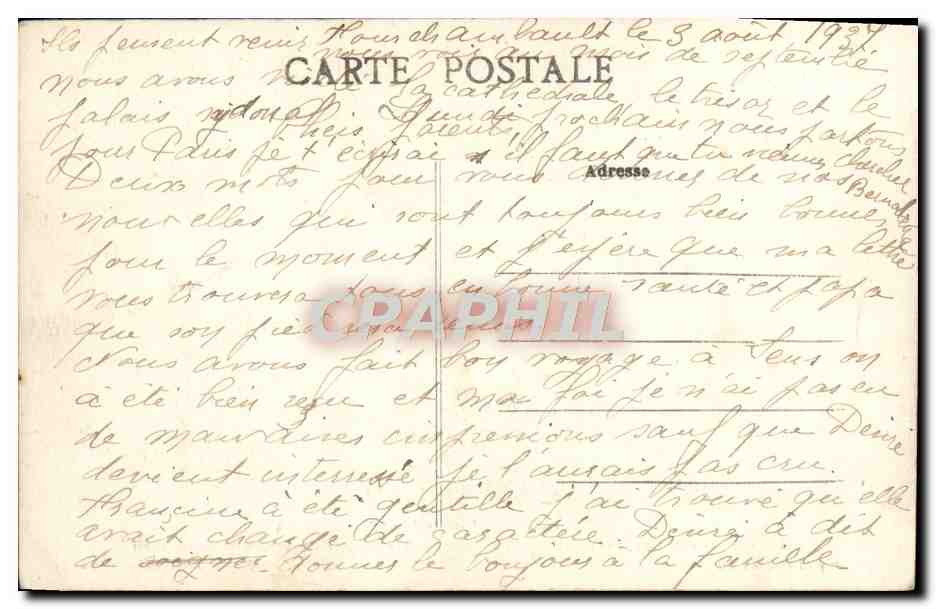 Fourchambault le 3 août 1937
Ils pensent venir nous voir au mois de septembre
CARTE POSTALE
nous avons la cathédrale le trésor et le
palais Lundi prochain nous partons
pour Paris je t'écrirai il faut que tu viennes chercher
Bernadette
Adresse
Chers parents
Deux mots pour vous donner de nos
nouvelles qui sont toujours bien bonnes
pour le moment et j'espère que ma lettre
vous trouvera tous en bonne santé et papa
que son pied va mieux
CPAPHIL
Nous avons fait bon voyage à Sens on
à été bien reçu et moi foi je n'ai pas eu
de mauvaises impressions sauf que Denise
devient interressé je l'aurais pas cru.
Françine à été gentille j'ai trouvé qu'elle
avait changé de caractère. Denise à dit
de donner le bonjour à la famille